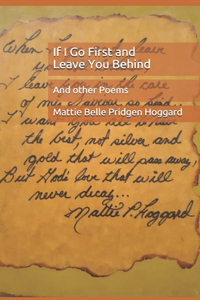 When I go and leave you
If I Go First and
Leave You Behind
I leave you in the care
And other Poems
of my Saviour so
Mattie Belle Pridgen Hoggard
the best, not silver and
gold that will pass away,
But God's love that will
never decay...
Mattie P. Hoggard